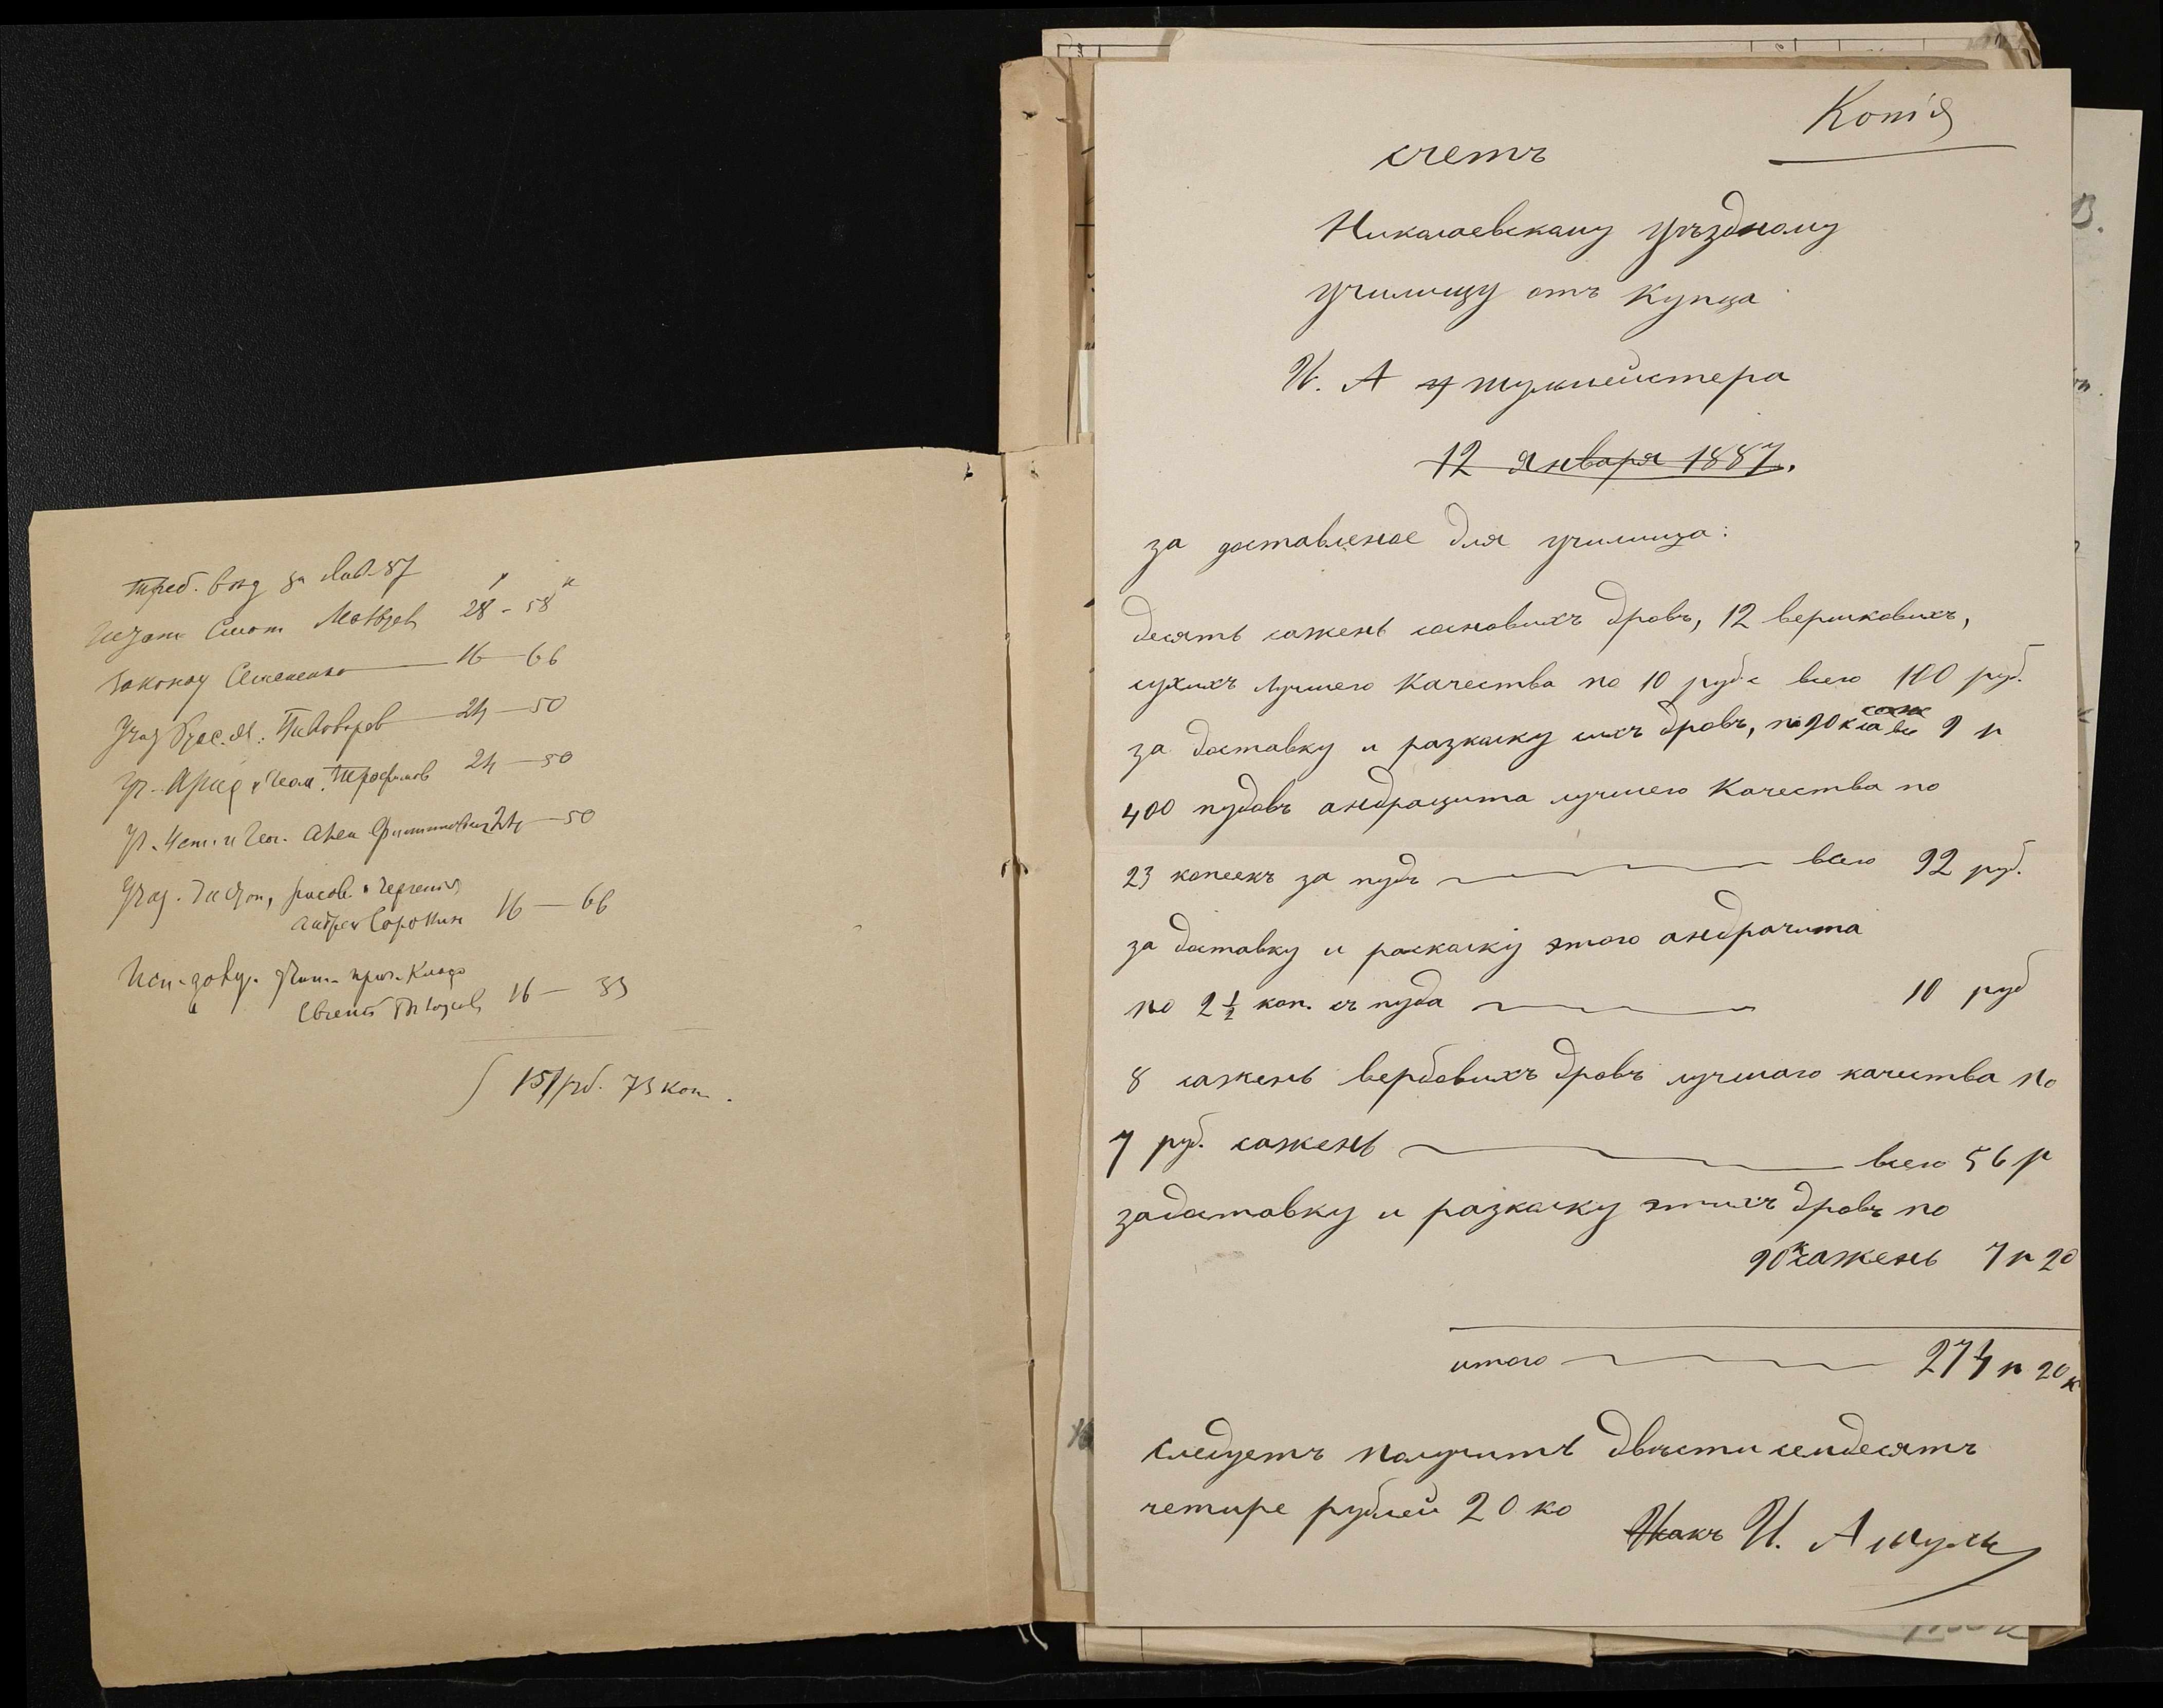 треб. вогд за Янв. 87
Штат. Смот. Матвеев 28 р - 58 к
Законоу Семененко — 16 — 66
Учит Рус. яз. Пивоваров — 24 — 50
Уч. Ариф. и Геом. Трофимов 24 — 50
Уч. Ист. и Геог. Филиппович 24 — 50
Учит. чистоп., рисов. и черчения
Андрей Сорокин 16 — 66
Исп. долж. Учит. приг. Класса
Евгений 16 — 33
151 руб. 73 коп.
Копія
счетъ
Николаевскому уѣздному
училищу отъ Купца
И. А шульмейстера
12 января 1887.
за доставленое для училища:
десять сажень сосновихъ дровъ, 12 вершковихъ,
сухихъ лучшего качества по 10 руб с всего 100 руб.
за доставку и разколку сихъ дровъ, по 90 к са все 9 р
400 пудовъ андрацита лучшего качества по
23 копеекъ за пудъ — всего 92 руб.
за доставку и расколку этого андрачита
по 2 1/2 коп. съ пуда — 10 руб
8 сажень вербовихъ дровъ лучшаго качества по
7 руб. сажень — всего 56 р
задоставку и разколку этихъ дровъ по
90 к сажень 7 р 20
итого — 274 р 20 к
следуетъ получить двѣсти семдесятъ
четире рублей 20 ко
И. А шуль